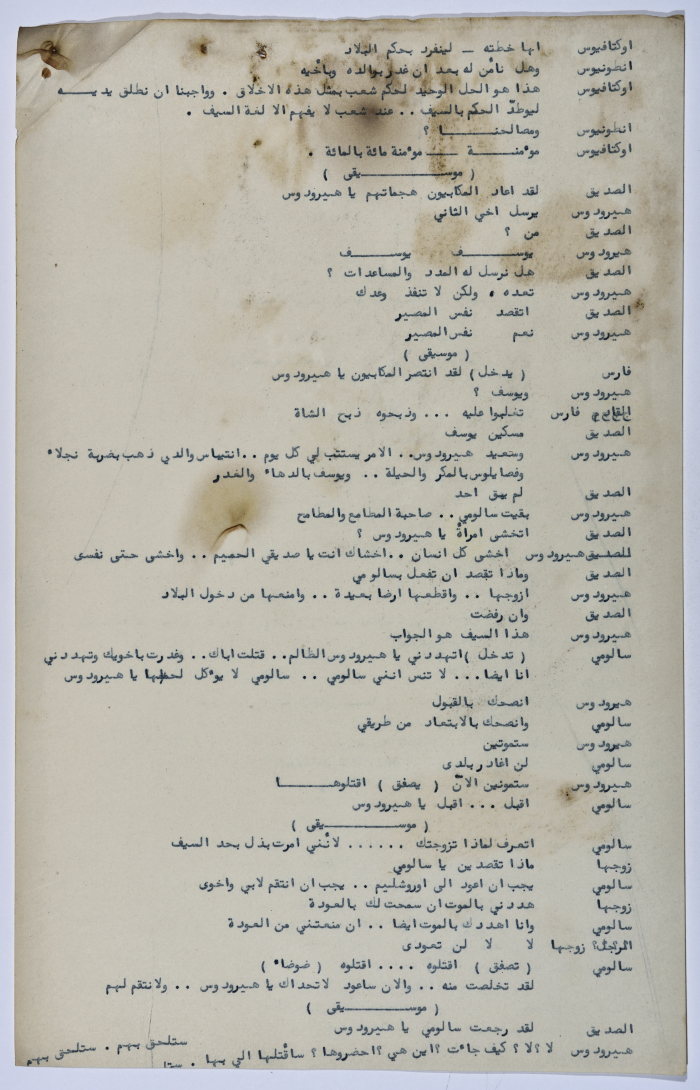 اوكتافيوس انها خطته – لينفرد بحكم البلاد
انطونيوس وهل نأمن له بعد ان غدر بوالده وبأخيه
اوكتافيوس هذا هو الحل الوحيد لحكم شعب بمثل هذه الاخلاق . وواجبنا ان نطلق يديه
ليوطدّ الحكم بالسيف .. عند شعب لا يفهم الا لغة السيف .
انطونيوس ومصالحنا ؟
اوكتافيوس مؤمنة – مؤمنة مائة بالمائة .
( موسيقى )
الصديق لقد اعاد المكابيون هجماتهم يا هيرودوس
هيرودوس يرسل اخي الثاني
الصديق من ؟
هيرودوس يوسف يوسف
الصديق هل نرسل له المدد والمساعدات ؟
هيرودوس تعده ، ولكن لا تنفذ وعدك
الصديق اتقصد نفس المصير
هيرودوس نعم نفس المصير
( موسيقى )
فارس ( يدخل ) لقد انتصر المكابيون يا هيرودوس
هيرودوس ويوسف ؟
فارس تغلبوا عليه ... وذبحوه ذبح الشاة
الصديق مسكين يوسف
هيرودوس وسعيد هيرودوس.. الامر يستتب لي كل يوم .. انتيباس والدي ذهب بضربة نجلاء
وفصايلوس بالمكر والحيلة .. ويوسف بالدهاء والغدر
الصديق لم يبق احد
هيرودوس بقيت سالومي .. صاحبة المطامع والمطامح
الصديق اتخشى امرأة يا هيرودوس ؟
هيرودوس اخشى كل انسان ..اخشاك انت يا صديقي الحميم .. واخشى حتى نفسى
الصديق وماذا تقصد ان تفعل بسالومي
هيرودوس ازوجها .. واقطعها ارضا بعيدة .. وامنعها من دخول البلاد
الصديق وان رفضت
هيرودوس هذا السيف هو الجواب
سالومي ( تدخل ) اتهددني يا هيرودوس الظالم.. قتلت اباك.. وغدرت باخويك وتهددني
انا ايضا... لا تنس انني سالومي .. سالومي لا يؤكل لحمها يا هيرودوس
هيرودوس انصحك بالقبول
سالومي وانصحك بالابتعاد من طريقي
هيرودوس ستموتين
سالومي لن اغادر بلدى
هيرودوس ستموتين الآن ( يصفق ) اقتلوها
سالومي اقبل ... اقبل يا هيرودوس
( موسيقى )
سالومي اتعرف لماذا تزوجتك ...... لأنني امرت بذل بحد السيف
زوجها ماذا تقصدين يا سالومي
سالومي يجب ان اعود الى اوروشليم .. يجب ان انتقم لابي واخوى
زوجها هددني بالموت ان سمحت لك بالعودة
سالومي وانا اهددك بالموت ايضا .. ان منعتني من العودة
زوجها لا لا لن تعودى
سالومي ( تصفق ) اقتلوه .... اقتلوه ( ضوضاء )
لقد تخلصت منه .. والان ساعود لاتحداك يا هيرودوس .. ولانتقم لهم
( موسيقى )
الصديق لقد رجعت سالومي يا هيرودوس
هيرودوس لا ؟لا ؟ كيف جاءت ؟اين هي ؟احضروها ؟ سأقتلها الي بها . ستلحق بهم . ستلحق بهم